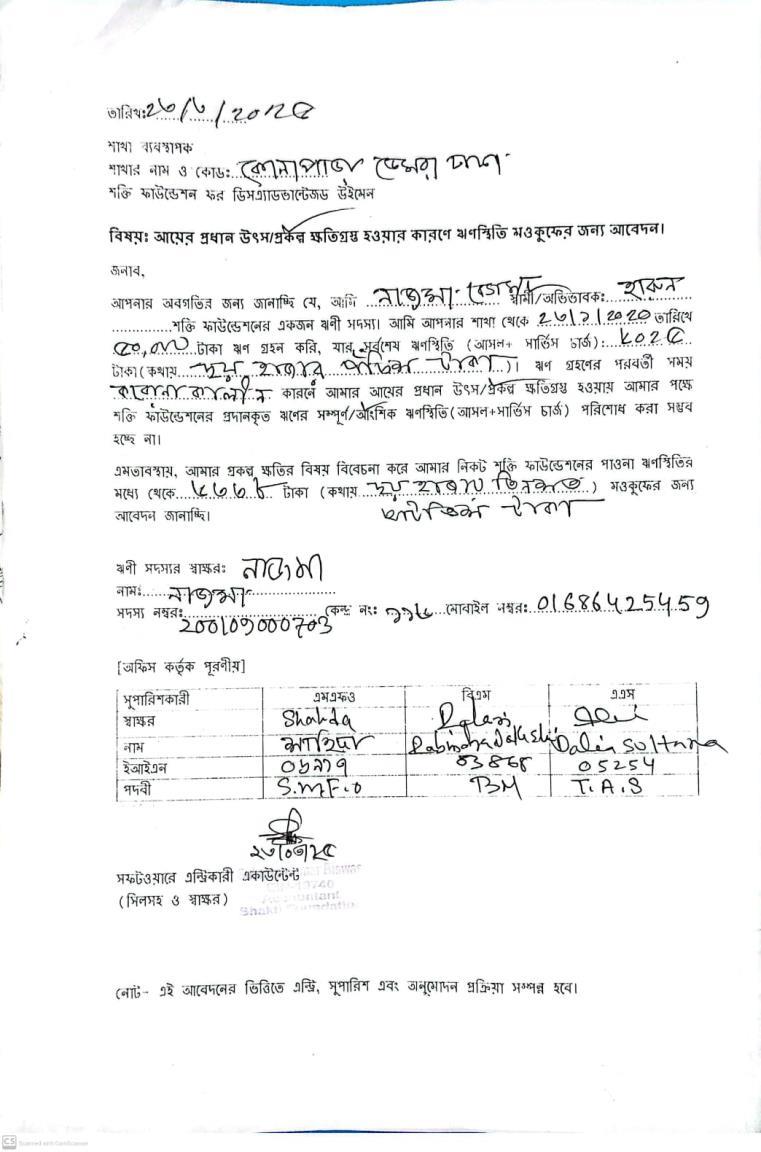 তারিখঃ২৬/৬/২০২৫
শাখা ব্যবস্থাপক
শাখার নাম ও কোড: কোনাপাড়া ডেমরা ঢাকা
শক্তি ফাউন্ডেশন ফর ডিসএ্যাডভান্টেজড উইমেন
বিষয়ঃ আয়ের প্রধান উৎস/প্রকল্প ক্ষতিগ্রস্থ হওয়ার কারণে ঋণস্থিতি মওকুফের জন্য আবেদন।
জনাব,
আপনার অবগতির জন্য জানাচ্ছি যে, আমি নাজমা বেগম স্বামী/অভিভাবক: হারুন
শক্তি ফাউন্ডেশনের একজন ঋণী সদস্য। আমি আপনার শাখা থেকে ২০২০ তারিখে
৫০,০০০ টাকা ঋণ গ্রহন করি, যার সর্বশেষ ঋণস্থিতি (আসল+ সার্ভিস চার্জ):
টাকা (কথায় হাজার পচিশ টাকা)। ঋণ গ্রহণের পরবর্তী সময়
করোনা কালীন কারনে আমার আয়ের প্রধান উৎস/প্রকল্প ক্ষতিগ্রস্থ হওয়ায় আমার পক্ষে
শক্তি ফাউন্ডেশনের প্রদানকৃত ঋণের সম্পূর্ণ/আংশিক ঋণস্থিতি (আসল+সার্ভিস চার্জ) পরিশোধ করা সম্ভব
হচ্ছে না।
এমতাবস্থায়, আমার প্রকল্প ক্ষতির বিষয় বিবেচনা করে আমার নিকট শক্তি ফাউন্ডেশনের পাওনা ঋণস্থিতির
মধ্যে থেকে টাকা (কথায় হাজার তিনশত) মওকুফের জন্য
টাকা
আবেদন জানাচ্ছি।
ঋণী সদস্যর স্বাক্ষরঃ নাজমা
নামঃ নাজমা
সদস্য নম্বরঃ কেন্দ্র নং: মোবাইল নম্বর: 01686425459
200109000703
[অফিস কর্তৃক পূরণীয়]
সুপারিশকারী এমএফও বিএম এএস
স্বাক্ষর Shahida
নাম শাহিদা Dalia Sultana
ইআইএন 03868 05254
পদবী S.M.F.O BM T.A.S
সফটওয়ারে এন্ট্রিকারী একাউন্টেন্ট
(সিলসহ ও স্বাক্ষর)
Accountant
Shakti Foundation
নোট- এই আবেদনের ভিত্তিতে এন্ট্রি, সুপারিশ এবং অনুমোদন প্রক্রিয়া সম্পন্ন হবে।
CS Scanned with CamScanner